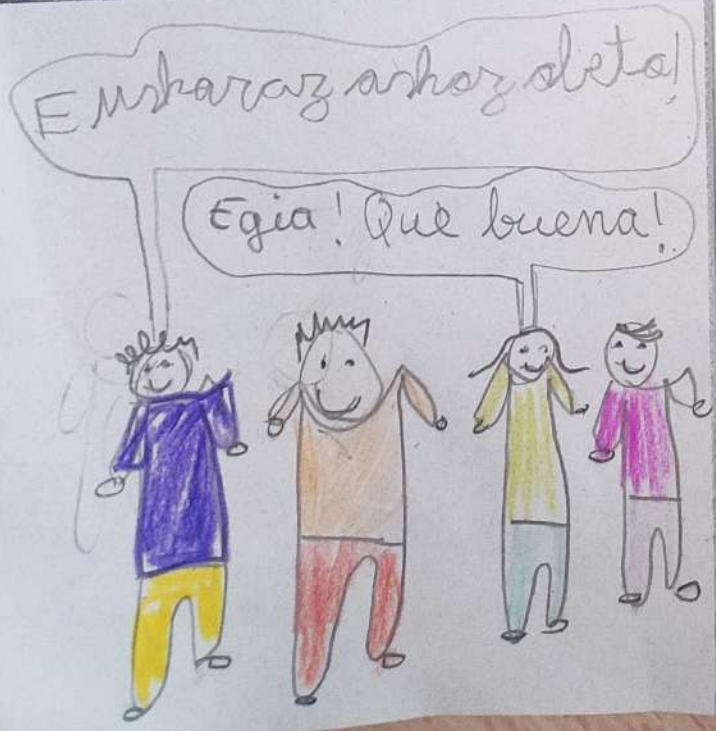 Euskaraz askoz oleto!
Egia! Que buena!